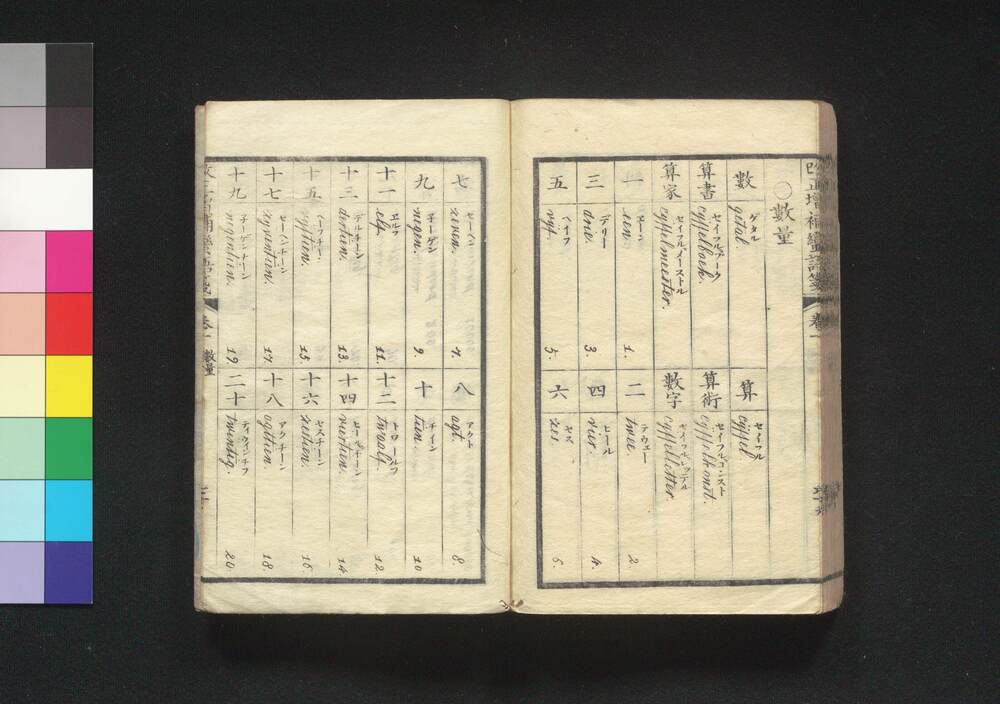 改正增補蠻語箋 卷一
○數量
數 ゲタル getal.
算 セイフル cyffel
算書 セイフルブーク cyffelboek.
算術 セイフルコンスト cyffelkonst.
算家 セイフルメーストル cyffelmeester.
數字 cyffelletter.
一 een. 1.
二 テウェー twee. 2.
三 デリー drie. 3.
四 ヒール vier. 4.
五 ヘイフ vyf. 5.
六 セス zes. 6.
七 セーヘン zeven. 7.
八 アクト agt. 8.
九 ネーゲン negen. 9.
十 チーン tien. 10
十一 エルフ elf. 11.
十二 トワールフ twaalf. 12.
十三 デルチーン dertien. 13.
十四 ヒールチーン viertien. 14.
十五 ヘイフチーン vyftien. 15.
十六 セスチーン zestien. 16
十七 セーヘンチーン zeventien. 17.
十八 アクチーン agttien. 18
十九 ネーゲンチーン negentien. 19
二十 ティウィンチフ twentig. 20
改正增補蠻語箋 卷一 數量